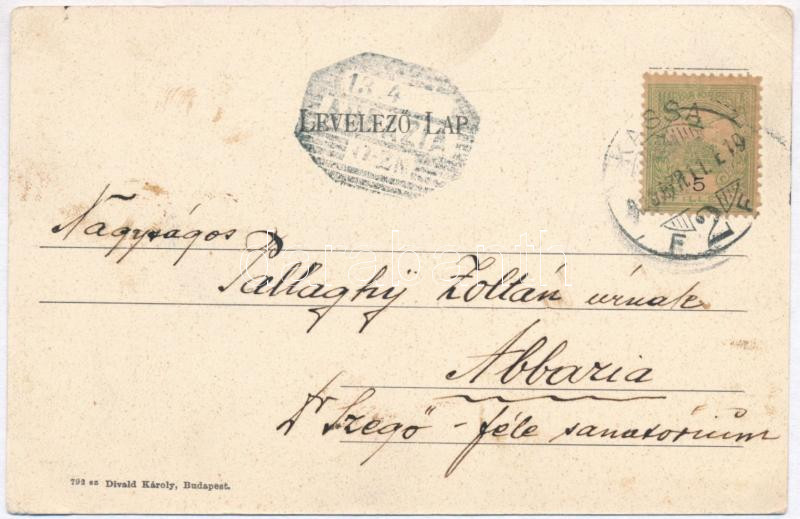 13 4
ABBAZIA
LEVELEZŐ LAP
KASSA
5
Nagyságos
Pallaghy Zoltán úrnak
Abbazia
Dr Szegő - féle sanatórium
792 sz Divald Károly, Budapest.
darabanth